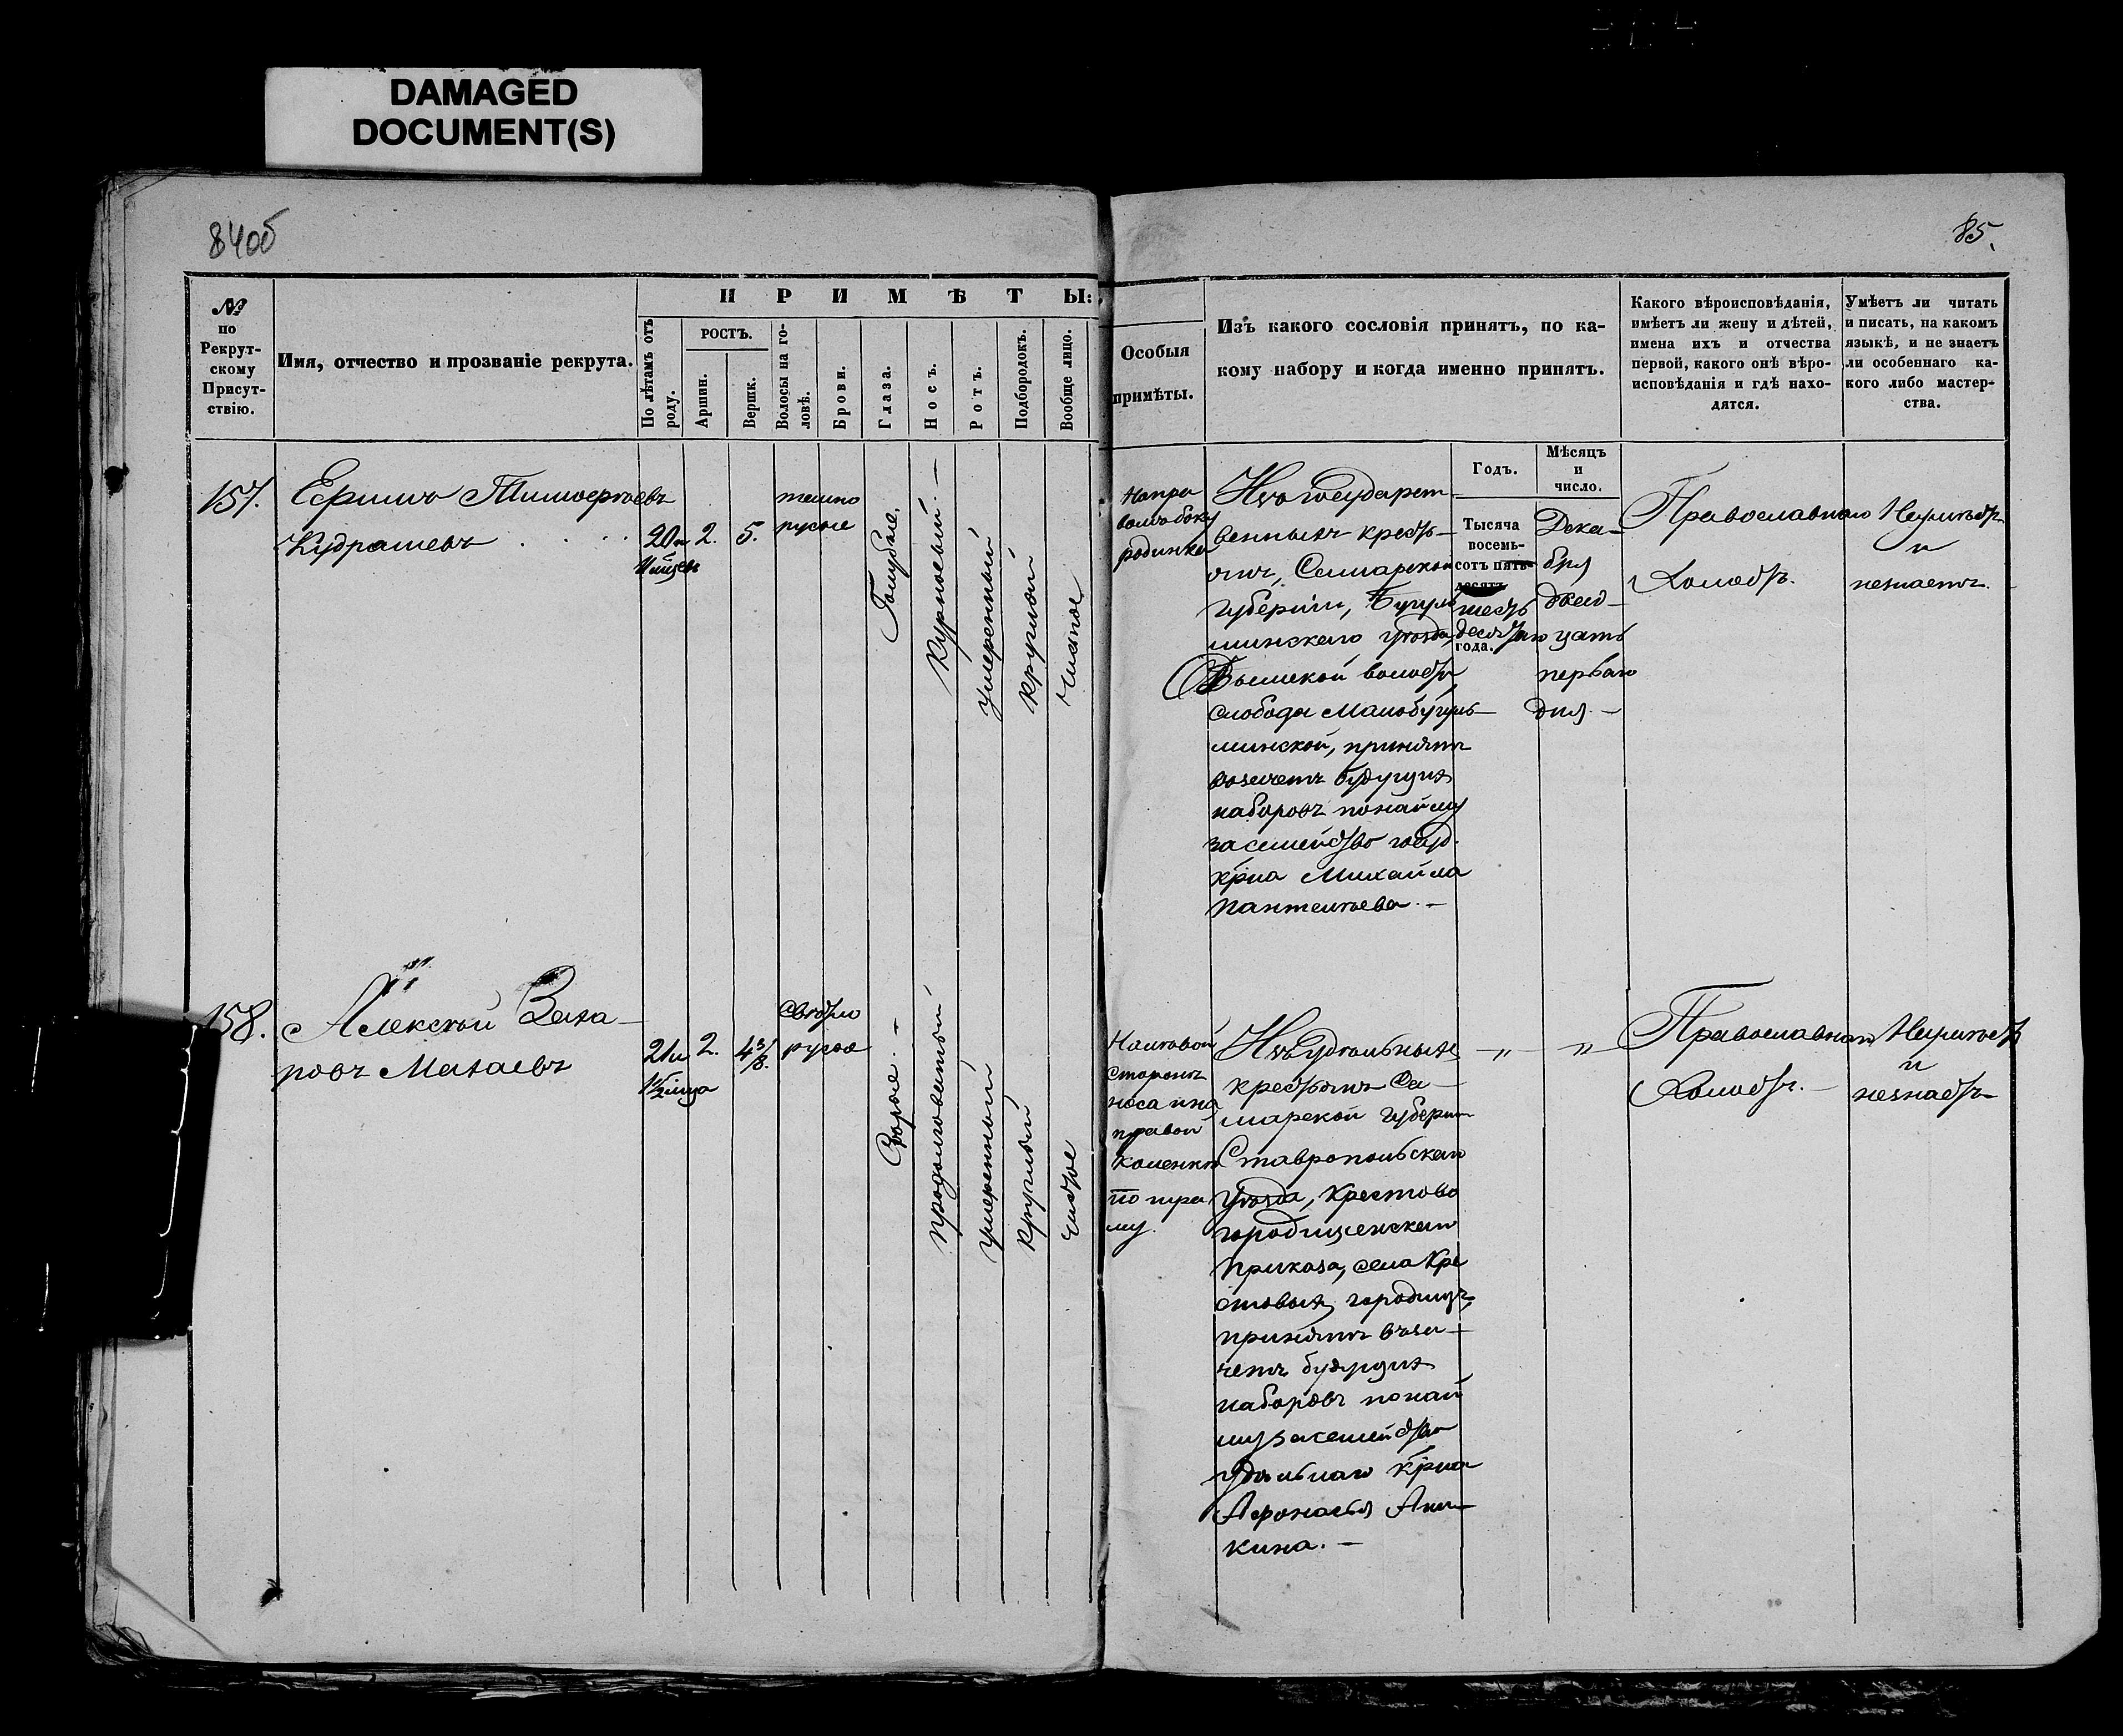 DAMAGED
DOCUMENT(S)
84об
85.
№
по
Рекрут-
скому
Присут-
ствію.
Имя, отчество и прозваніе рекрута.
ПРИМѢТЫ:
По лѣтамъ отъ
роду.
РОСТЪ.
Аршин.
Вершк.
Волосы на го-
ловѣ.
Брови.
Глаза.
Носъ.
Ротъ.
Подбородокъ.
Вообще лицо.
Особыя
примѣты.
Изъ какого сословія принятъ, по ка-
кому набору и когда именно принятъ.
Какого вѣроисповѣданія,
имѣетъ ли жену и дѣтей,
имена ихъ и отчества
первой, какого онѣ вѣро-
исповѣданія и гдѣ нахо-
дятся.
Умѣетъ ли читать
и писать, на какомъ
языкѣ, и не знаетъ
ли особеннаго ка-
кого либо мастер-
ства.
Годъ.
Мѣсяцъ
и
число.
157.
Ефимъ Тимофѣевъ
Кудрашевъ
20 и
2.
5.
темно
русые
Голубые.
Курносый.
умеренный
круглый
чистое
На пра
вомъ боку
родинка
Изъ государст-
венныхъ кресть-
янъ, Самарской
губерніи, Бугуль
минскаго уѣзда,
волости
слободы Малобугуль-
минской, принятъ
въ зачетъ будущихъ
наборовъ по найму
за семейство госуд.
кр-на Михайла
Пантелѣева. —
Тысяча
восемь-
сотъ пять-
десятъ
шесть
десятаго
года.
Дека-
бря
двад-
цать
перваго
дня. —
Православнаго
Холостъ.
Неумѣетъ
и
незнаетъ.
158.
Алексѣй Заха-
ровъ Махаевъ
21 и
1½ м-ца
2.
4 3/8.
свѣтло
русые
Сѣрые. —
продолговатый
умеренный
круглый
чистое
На лѣвой
сторонѣ
носа и на
правой
коленкѣ
по шра
му.
Изъ удѣльныхъ
крестьянъ Са-
марской губерніи
Ставропольскаго
уѣзда, Крестово
городищенскаго
приказа, села Кре
стовыхъ городищъ,
принятъ въ за-
четъ будущихъ
наборовъ по най
му за семейство
удѣльнаго кр-на
Афонасья Ани-
кина. —
— " — " —
Православнаго
Холостъ. —
Неумѣетъ
и
незнаетъ